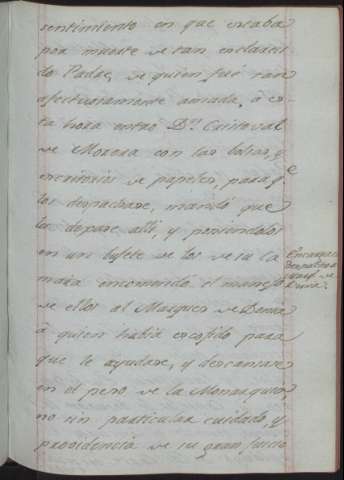 sentimiento en que estaba
por muerte de tan esclareci
do Padre, de quien fué tan
afectuosamente amada, á es-
ta hora entró Dn. Cristoval
de Morera con las bolsas, y
escritorios de papeles, para qe
los despachase, mandó que
los depase allí, y poniendolos
en un bufete de los de su la
maxa encomendó el manejo
de ellos al Marques de Denia
á quien habia escogido para
que le ayudase, y descansase
en el peso de la Monarquia,
no sin particular cuidado, y
providencia de su gran juicio
Encargase